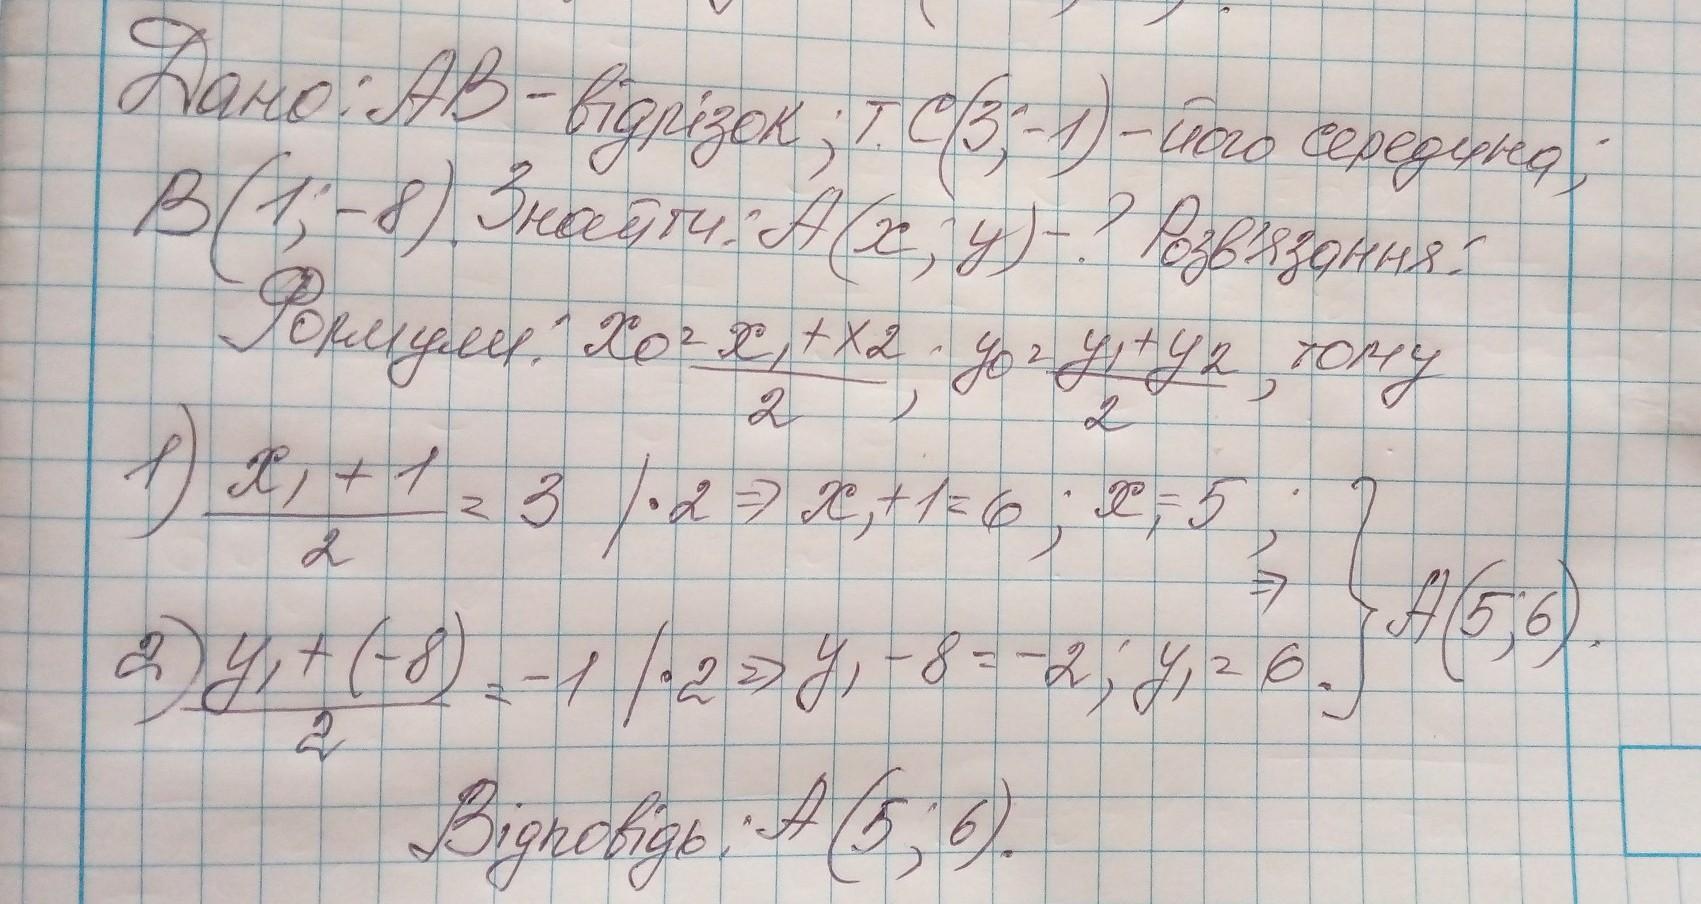 Дано: AB - відрізок; т. C(3; -1) - його середина;
B(1; -8). Знайти: A(x; y) - ? Розв'язання:
Формули: x0 = x1 + x2 / 2; y0 = y1 + y2 / 2, тому
1) x1 + 1 / 2 = 3 / · 2 => x1 + 1 = 6; x1 = 5;
=> } A(5; 6).
2) y1 + (-8) / 2 = -1 / · 2 => y1 - 8 = -2; y1 = 6.
Відповідь: A(5; 6).